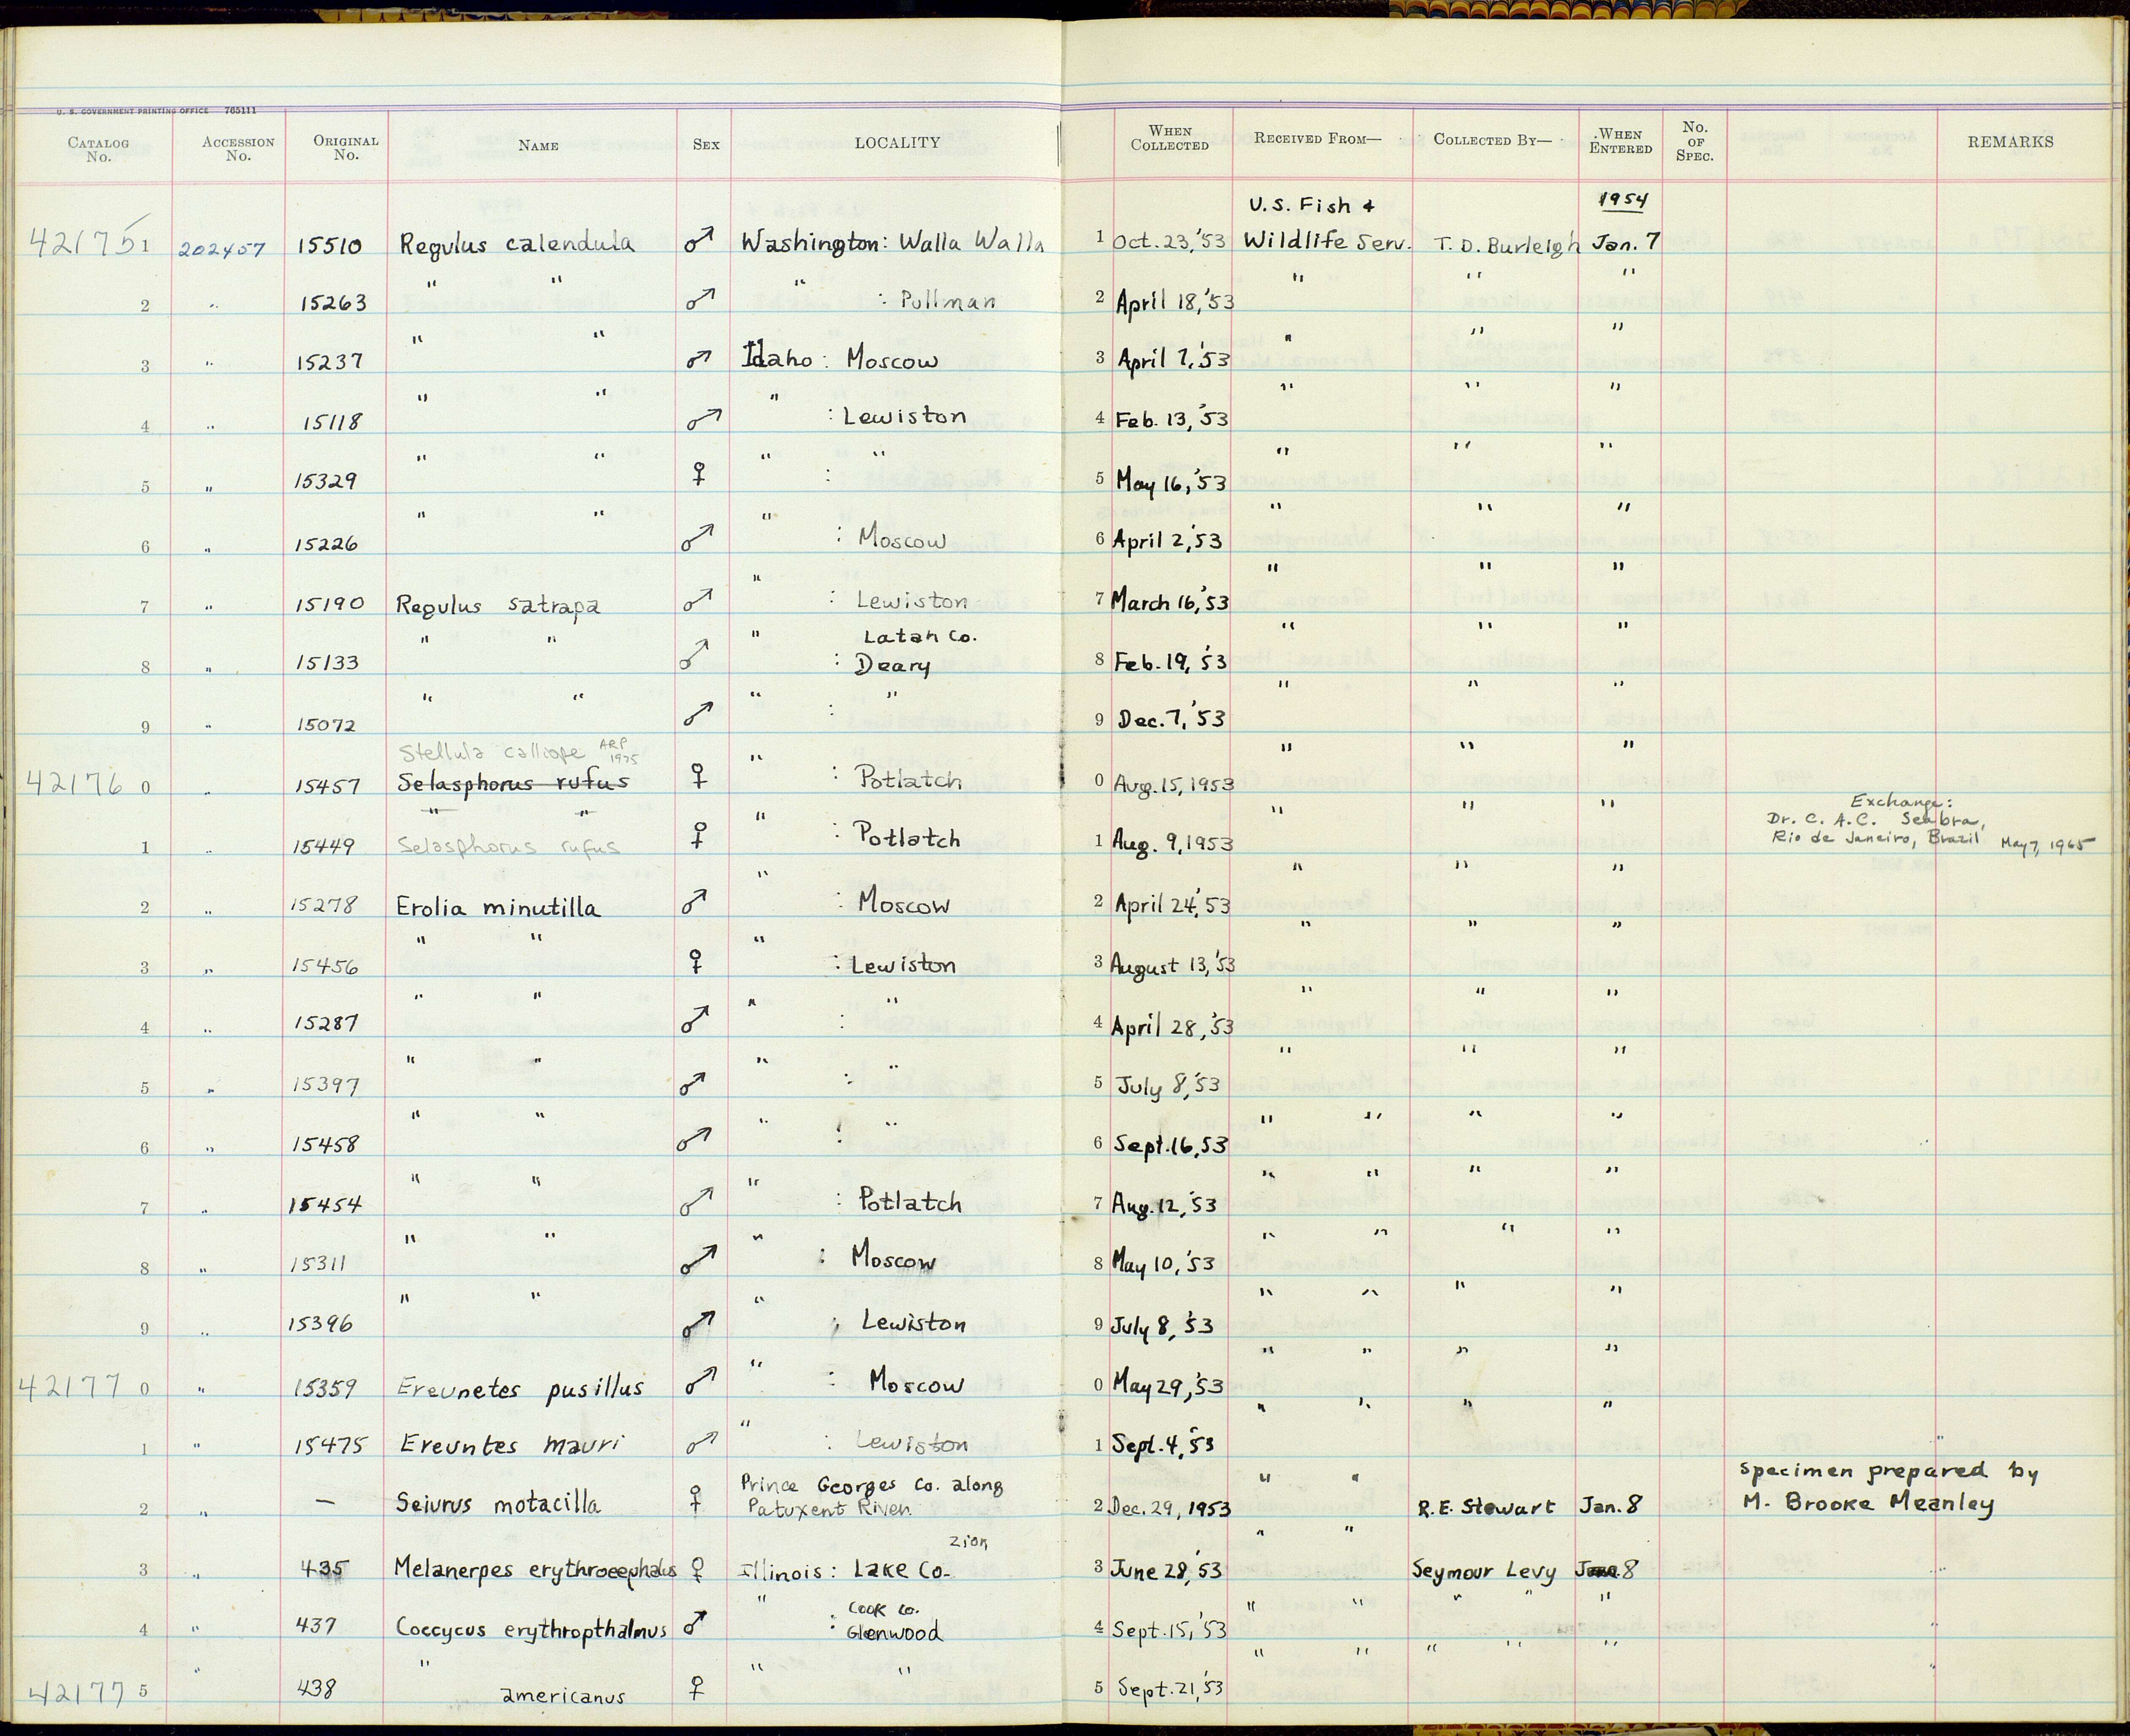 U. S. GOVERNMENT PRINTING OFFICE 765111
CATALOG No. ACCESSION No. ORIGINAL No. NAME SEX LOCALITY WHEN COLLECTED RECEIVED FROM— COLLECTED BY— WHEN ENTERED No. OF SPEC. REMARKS
U.S. Fish & 1954
421751 202457 15510 Regulus calendula ♂ Washington: Walla Walla 1 Oct. 23, '53 Wildlife Serv. T. D. Burleigh Jan. 7
2 " 15263 " " ♂ " : Pullman 2 April 18, '53 " " "
3 " 15237 " " ♂ Idaho : Moscow 3 April 7, '53 " " "
4 " 15118 " " ♂ " : Lewiston 4 Feb. 13, '53 " " "
5 " 15329 " " ♀ " : " 5 May 16, '53 " " "
6 " 15226 " " ♂ " : Moscow 6 April 2, '53 " " "
7 " 15190 Regulus satrapa ♂ " : Lewiston 7 March 16, '53 " " "
Latah Co.
8 " 15133 " " ♂ " : Deary 8 Feb. 19, '53 " " "
9 " 15072 " " ♂ " : " 9 Dec. 7, '53 " " "
Stellula calliope ARP 1975
42176 0 " 15457 Selasphorus rufus ♀ " : Potlatch 0 Aug. 15, 1953 " " "
" "
Exchange:
Dr. C. A.C. Seabra,
1 " 15449 Selasphorus rufus ♀ " : Potlatch 1 Aug. 9, 1953 " " " Rio de Janeiro, Brazil May 7, 1965
2 " 15278 Erolia minutilla ♂ " : Moscow 2 April 24, '53 " " "
3 " 15456 " " ♀ " : Lewiston 3 August 13, '53 " " "
4 " 15287 " " ♂ " : " 4 April 28, '53 " " "
5 " 15397 " " ♂ " : " 5 July 8, '53 " " "
6 " 15458 " " ♂ " : " 6 Sept. 16, 53 " " " "
7 " 15454 " " ♂ " : Potlatch 7 Aug. 12, '53 " " " "
8 " 15311 " " ♂ " : Moscow 8 May 10, '53 " " " "
9 " 15396 " " ♂ " : Lewiston 9 July 8, '53 " " " "
42177 0 " 15359 Ereunetes pusillus ♂ " : Moscow 0 May 29, '53 " " " "
1 " 15475 Ereuntes mauri ♂ " : Lewiston 1 Sept. 4, '53 " " " "
Prince Georges Co. along Specimen prepared by
2 " — Seiurus motacilla ♀ Patuxent River 2 Dec. 29, 1953 " " R. E. Stewart Jan. 8 M. Brooke Meanley
Zion
3 " 435 Melanerpes erythrocephalus ♀ Illinois : Lake Co. 3 June 28, '53 " " Seymour Levy Jan. 8
Cook Co.
4 " 437 Coccycus erythropthalmus ♂ " : Glenwood 4 Sept. 15, '53 " " " " "
42177 5 " 438 " americanus ♀ " " 5 Sept. 21, '53 " " " " "